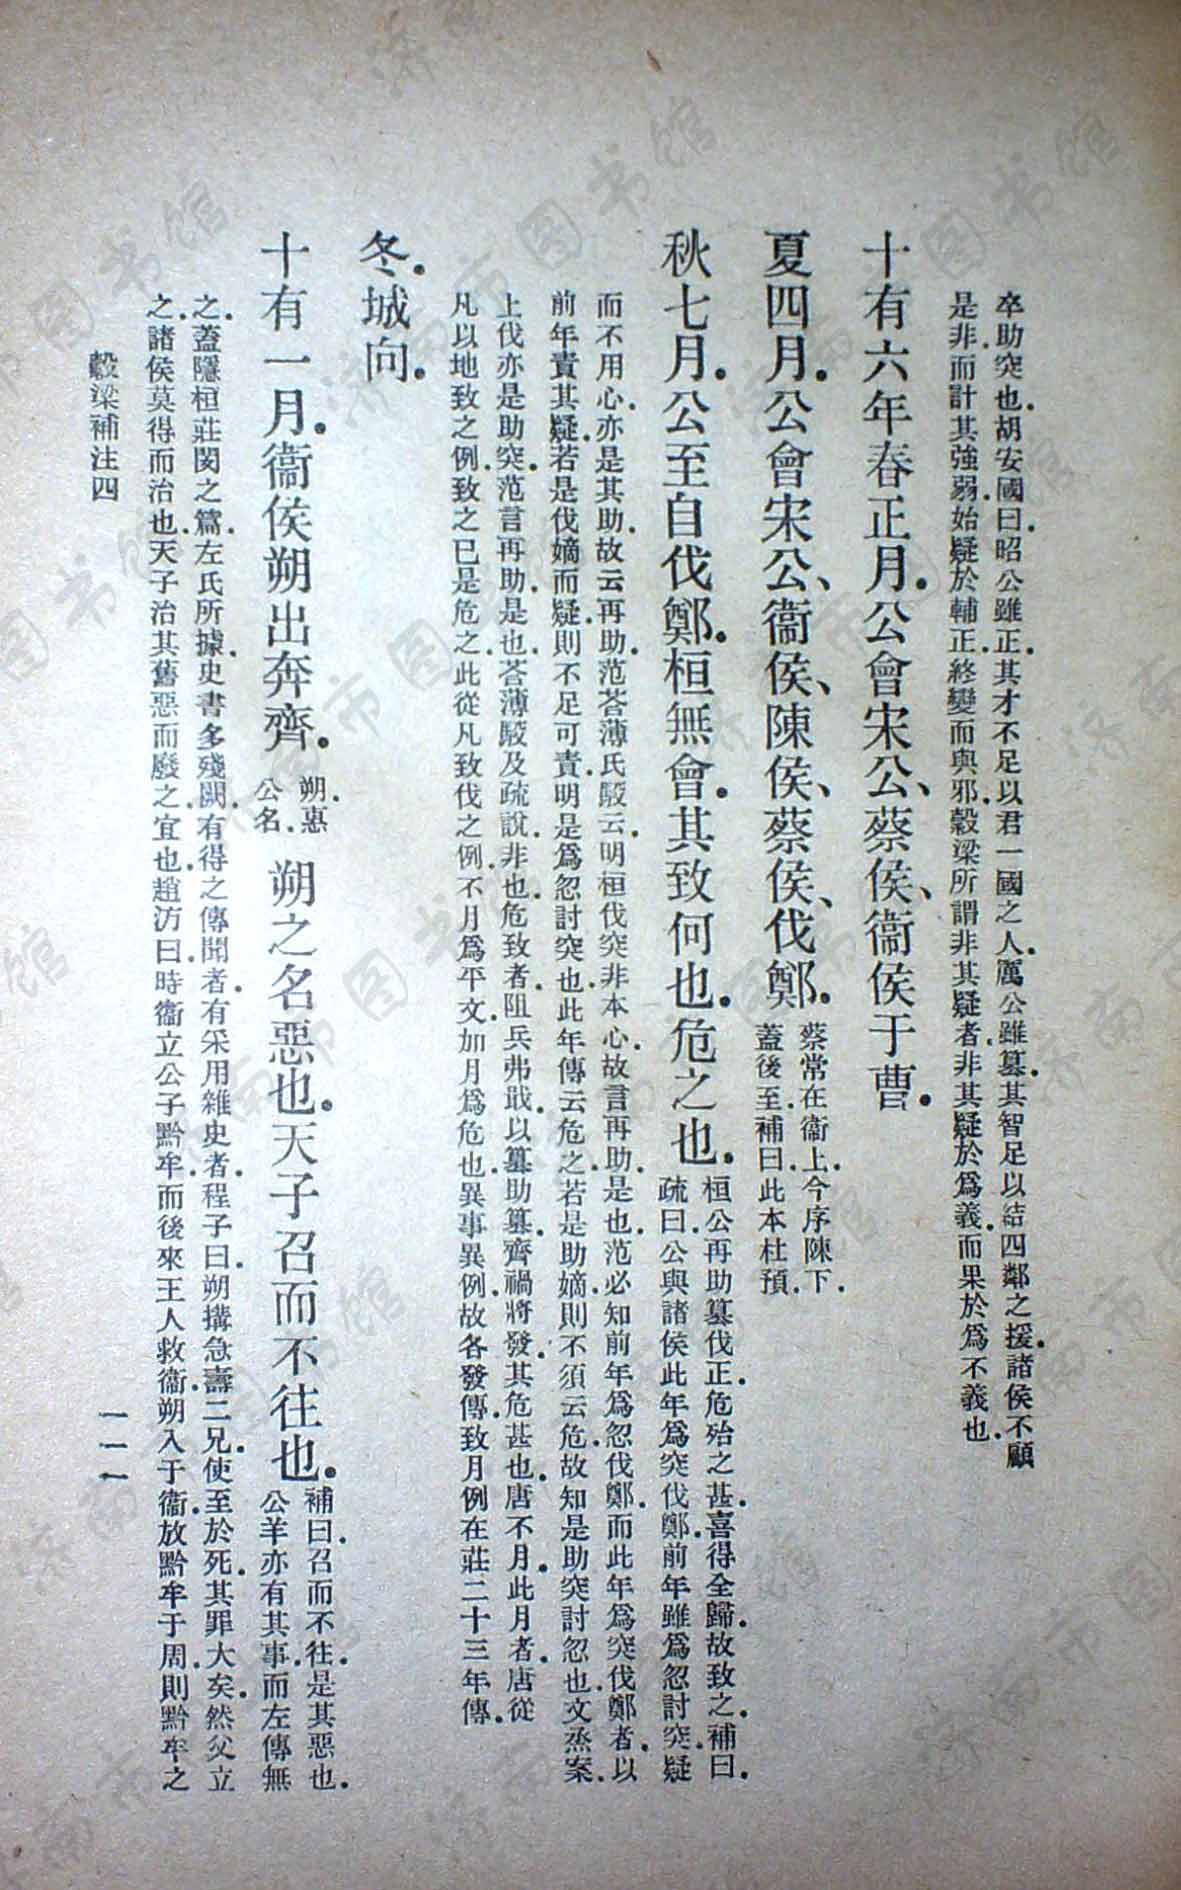 卒助突也．胡安國曰．昭公雖正．其才不足以君一國之人．厲公雖篡．其智足以結四鄰之援．諸侯不顧
是非．而計其強弱．始疑於輔正．終變而與邪．穀梁所謂非其疑者．非其疑於爲義．而果於爲不義也．
十有六年春正月．公會宋公、蔡侯、衞侯于曹．
夏四月．公會宋公、衞侯、陳侯、蔡侯、伐鄭．
蔡常在衞上．今序陳下．
蓋後至．補曰．此本杜預．
秋七月．公至自伐鄭．桓無會．其致何也．危之也．
桓公再助篡伐正．危殆之甚．喜得全歸．故致之．補曰．
疏曰．公與諸侯此年爲突伐鄭．前年雖爲忽討突．疑
而不用心．亦是其助．故云再助．范荅薄氏駮云．明桓伐突非本心．故言再助．是也．范必知前年爲忽伐鄭．而此年爲突伐鄭者．以
前年責其疑．若是伐嫡而疑．則不足可責．明是爲忽討突也．此年傳云危之．若是助嫡．則不須云危．故知是助突討忽也．文烝案．
上伐亦是助突．范言再助．是也．荅薄駮及疏說．非也．危致者．阻兵弗戢．以篡助篡．齊禍將發．其危甚也．唐不月．此月者．唐從
凡以地致之例．致之已是危之．此從凡致伐之例．不月爲平文．加月爲危也．異事異例．故各發傳．致月例在莊二十三年傳．
冬．城向．
十有一月．衞侯朔出奔齊．
朔．惠
公名．
朔之名惡也．天子召而不往也．
補曰．召而不往．是其惡也．
公羊亦有其事．而左傳無
之．蓋隱桓莊閔之篇．左氏所據史書多殘闕．有得之傳聞者．有采用雜史者．程子曰．朔搆急壽二兄．使至於死．其罪大矣．然父立
之．諸侯莫得而治也．天子治其舊惡而廢之．宜也．趙汸曰．時衞立公子黔牟．而後來王人救衞．朔入于衞．放黔牟于周．則黔牟之
穀梁補注四
一一一